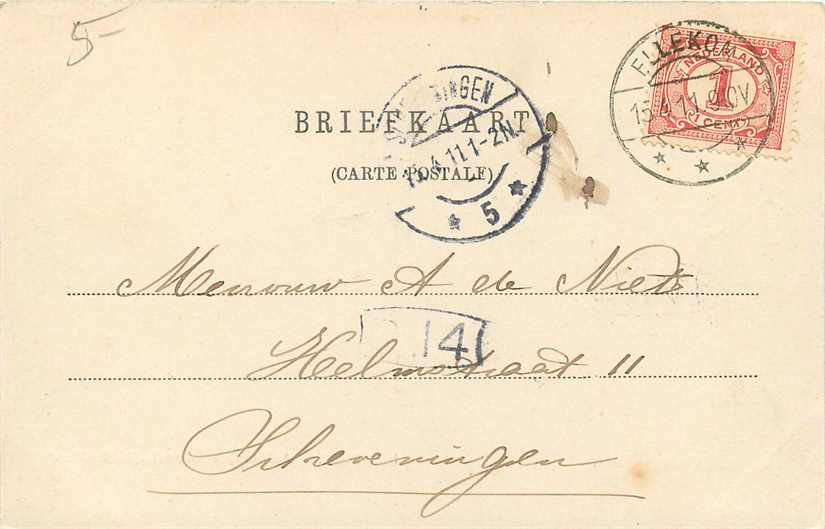 5-
ELLEKOM
15.4.11.9-10V
NEDERLAND
1
CENT
BRIEFKAART
(CARTE POSTALE)
15.4.11.1-2N.
5
Mevrouw A de Niet
14
Helmstraat 11
Scheveningen